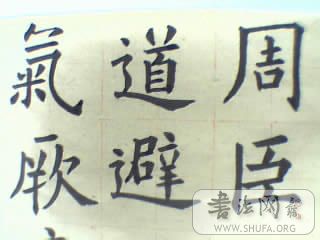 周臣
道避
氣厥
书法网
WWW.SHUFA.ORG